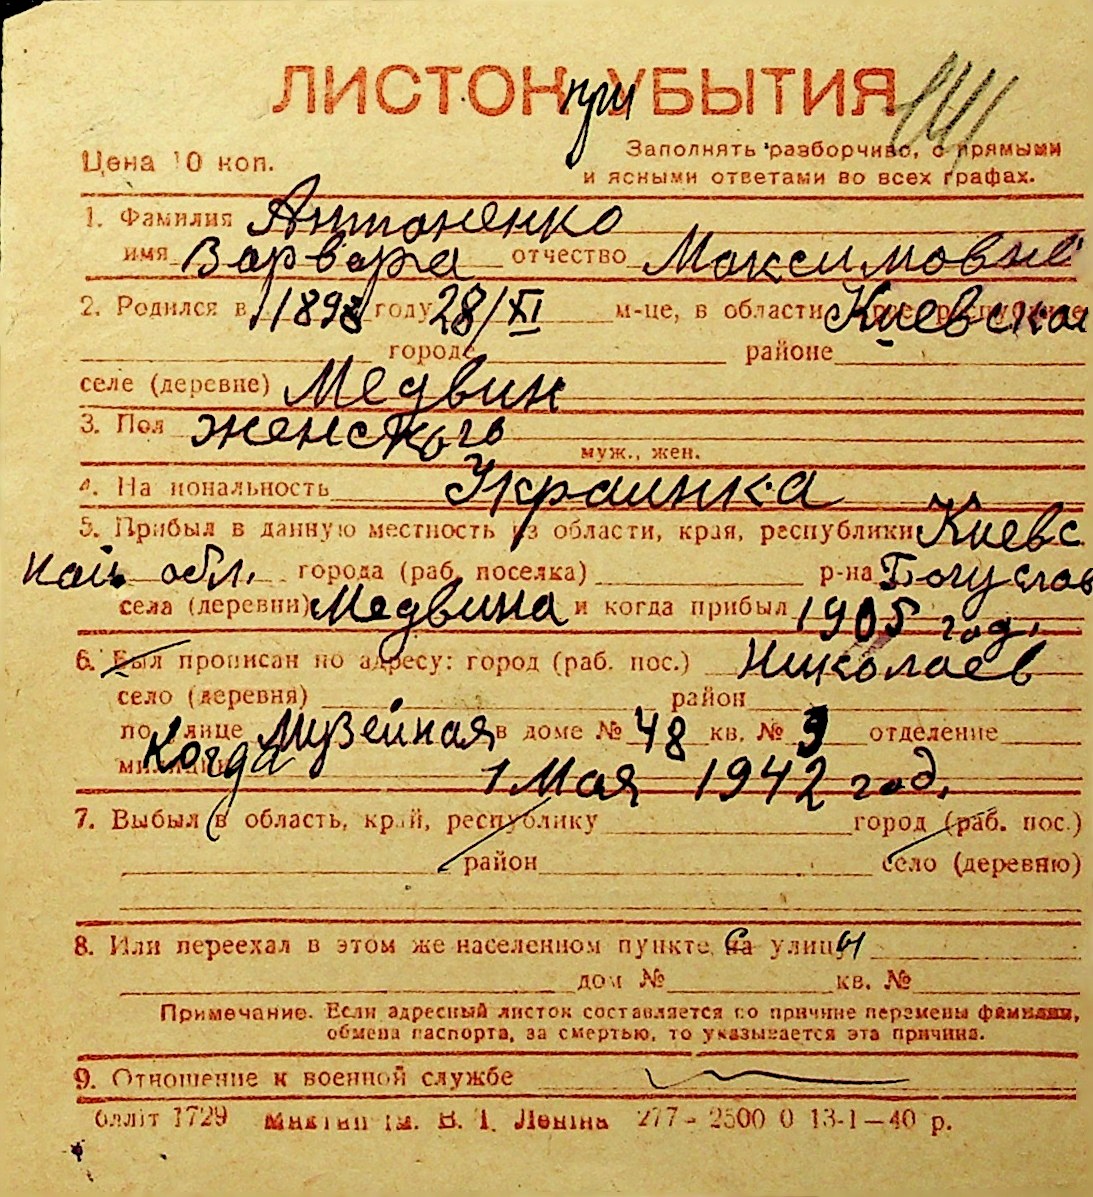 ЛИСТОК при УБЫТИЯ
Цена 10 коп.
Заполнять разборчиво, с прямыми
и ясными ответами во всех графах.
1. Фамилия Антоненко
имя Варвара отчество Максимовне
2. Родился в 1898 году 28/XI м-це, в области, Киевской
городе районе
селе (деревне) Медвин
3. Пол женского
муж., жен.
4. Национальность Украинка
5. Прибыл в данную местность из области, края, республики Киевс
кой обл. города (раб. поселка) р-на Богуслав
села (деревни) Медвина и когда прибыл 1905 год.
6. Был прописан по адресу: город (раб. пос.) Николаев
село (деревня) район
по улице Музейная в доме № 48 кв. № 3 отделение
милиции Когда 1 Мая 1942 год.
7. Выбыл в область, край, республику город (раб. пос.)
район село (деревню)
8. Или переехал в этом же населенном пункте, с на улицы
дом № кв. №
Примечание. Если адресный листок составляется по причине перемены фамилии,
обмена паспорта, за смертью, то указывается эта причина.
9. Отношение к военной службе
облліт 1729 ім. В. І. Леніна 277 - 2500 0 13-1-40 р.